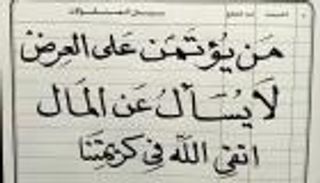 مَن يُؤتَمَن عَلى العِرضِ
لَا يُسَأَلُ عَن المَال
اتقي اللّه في كريمتِنَا